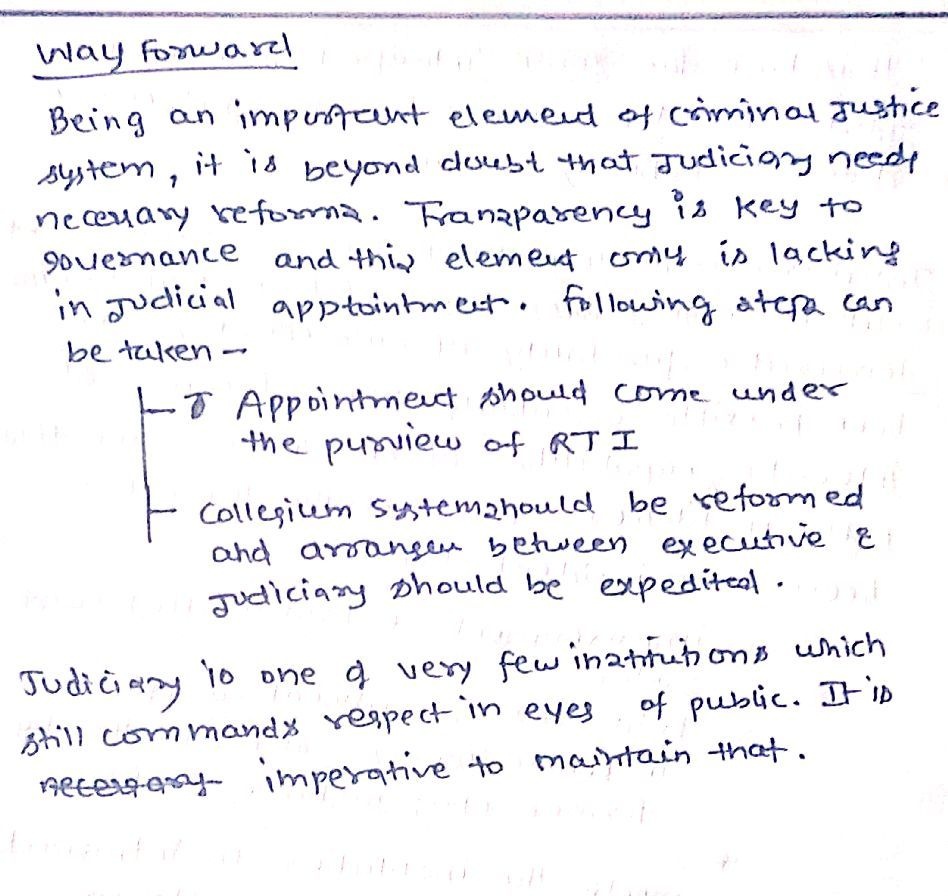 Way Forward
Being an important element of criminal Justice
system, it is beyond doubt that Judiciary needs
necessary reforms. Transparency is key to
governance and this element only is lacking
in Judicial apptointment. Following steps can
be taken -
Appointment should come under
the purview of RTI
Collegium system should be reformed
and between executive &
Judiciary should be expedited.
Judiciary is one of very few institutions which
still commands respect in eyes of public. It is
necessary imperative to maintain that.